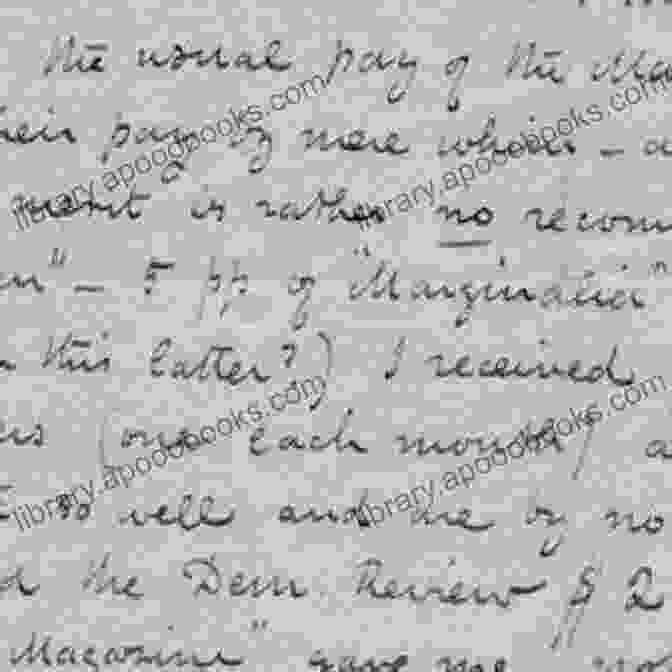 the usual pay of the Ma
heir pay by mere whim — a
ment is rather no recom
en" — 5 pp of "Marginalia"
n this latter?) I received
ers (one each month) a
so well and are by no
d the Dem. Review $ 2
Magazine" gave me
library.apooobooks.com
library.apooobooks.com
library.apooobooks.com
library.apooobooks.com